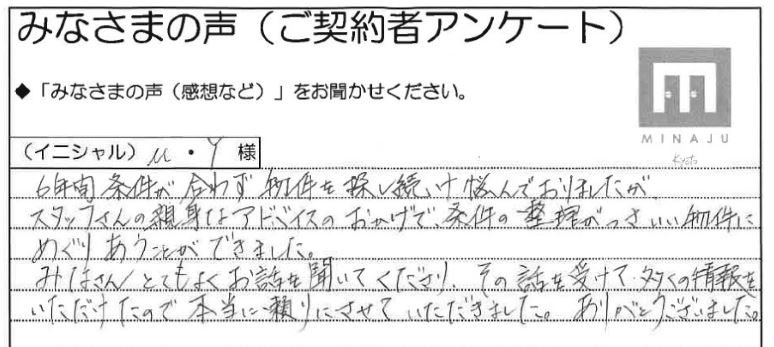 みなさまの声（ご契約者アンケート）
◆「みなさまの声（感想など）」をお聞かせください。
MINAJU
Kyoto
（イニシャル）M・Y 様
6年間 条件が 合わず 物件を 探し続け 悩んでおりましたが
スタッフさんの親身なアドバイスの おかげで、条件の 整理がつき いい物件に
めぐりあうことができました。
みなさん とてもよく お話を 聞いてくださり、その 話を受けて 多くの情報を
いただけたので 本当に 頼りにさせて いただきました。 ありがとうございました。